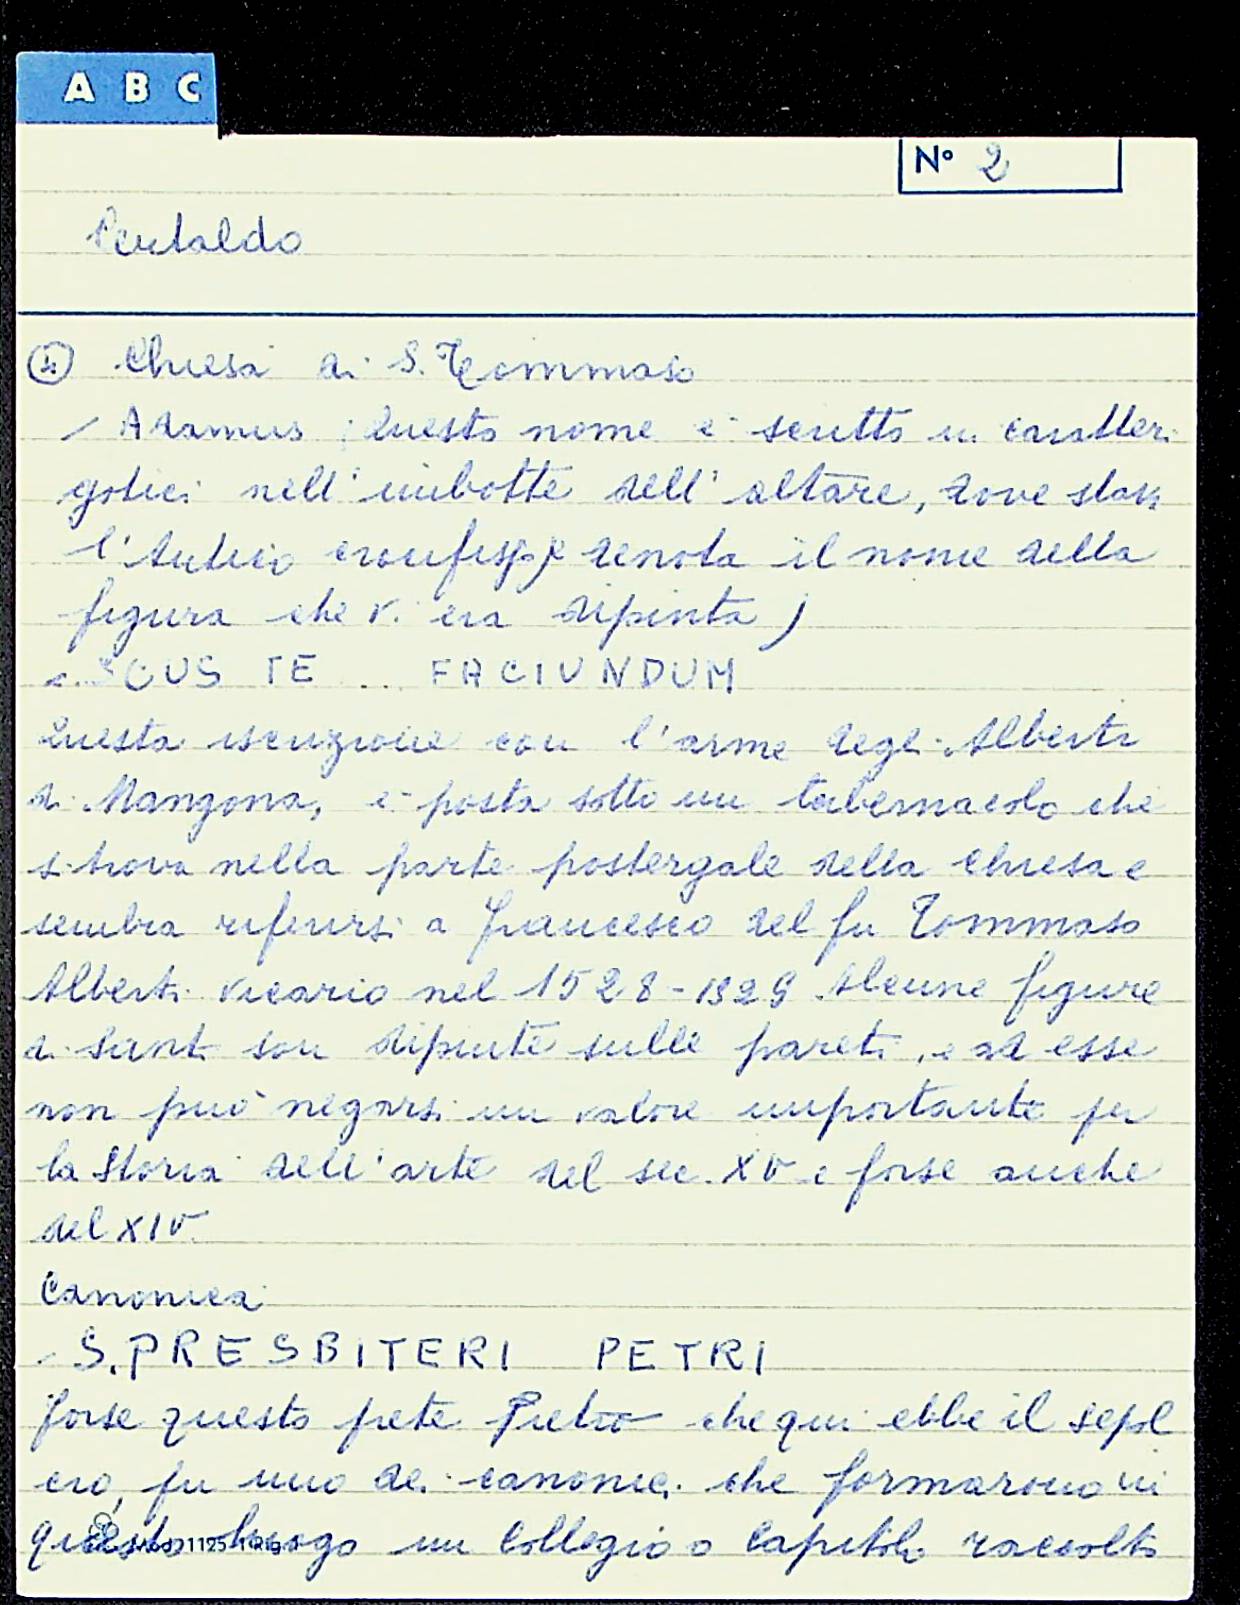 A B C
Nº 2
Certaldo
Chiesa di S. Tommaso
Adamus (Questo nome è scritto in caratteri
gotici nell'imbotte dell'altare, dove stava
l'Antico crocifisso e denota il nome della
figura che vi era dipinta)
SCUS TE .. FACIUNDUM
Questa iscrizione con l'arme degli Alberti
di Mangona, è posta sotto un tabernacolo che
si trova nella parte postergale della Chiesa e
sembra riferirsi a Francesco del fu Tommaso
Alberti vicario nel 1528-1529 Alcune figure
di Santi son dipinte sulle pareti, e ad esse
non può negarsi un valore importante per
la Storia dell'arte del sec. XV e forse anche
del XIV.
Canonica
S. PRESBITERI PETRI
forse questo prete Pietro che qui ebbe il sepol
cro, fu uno dei canonici che formarono in
questo luogo un Collegio o Capitolo raccolto
Mod. 1125 1 Rig.